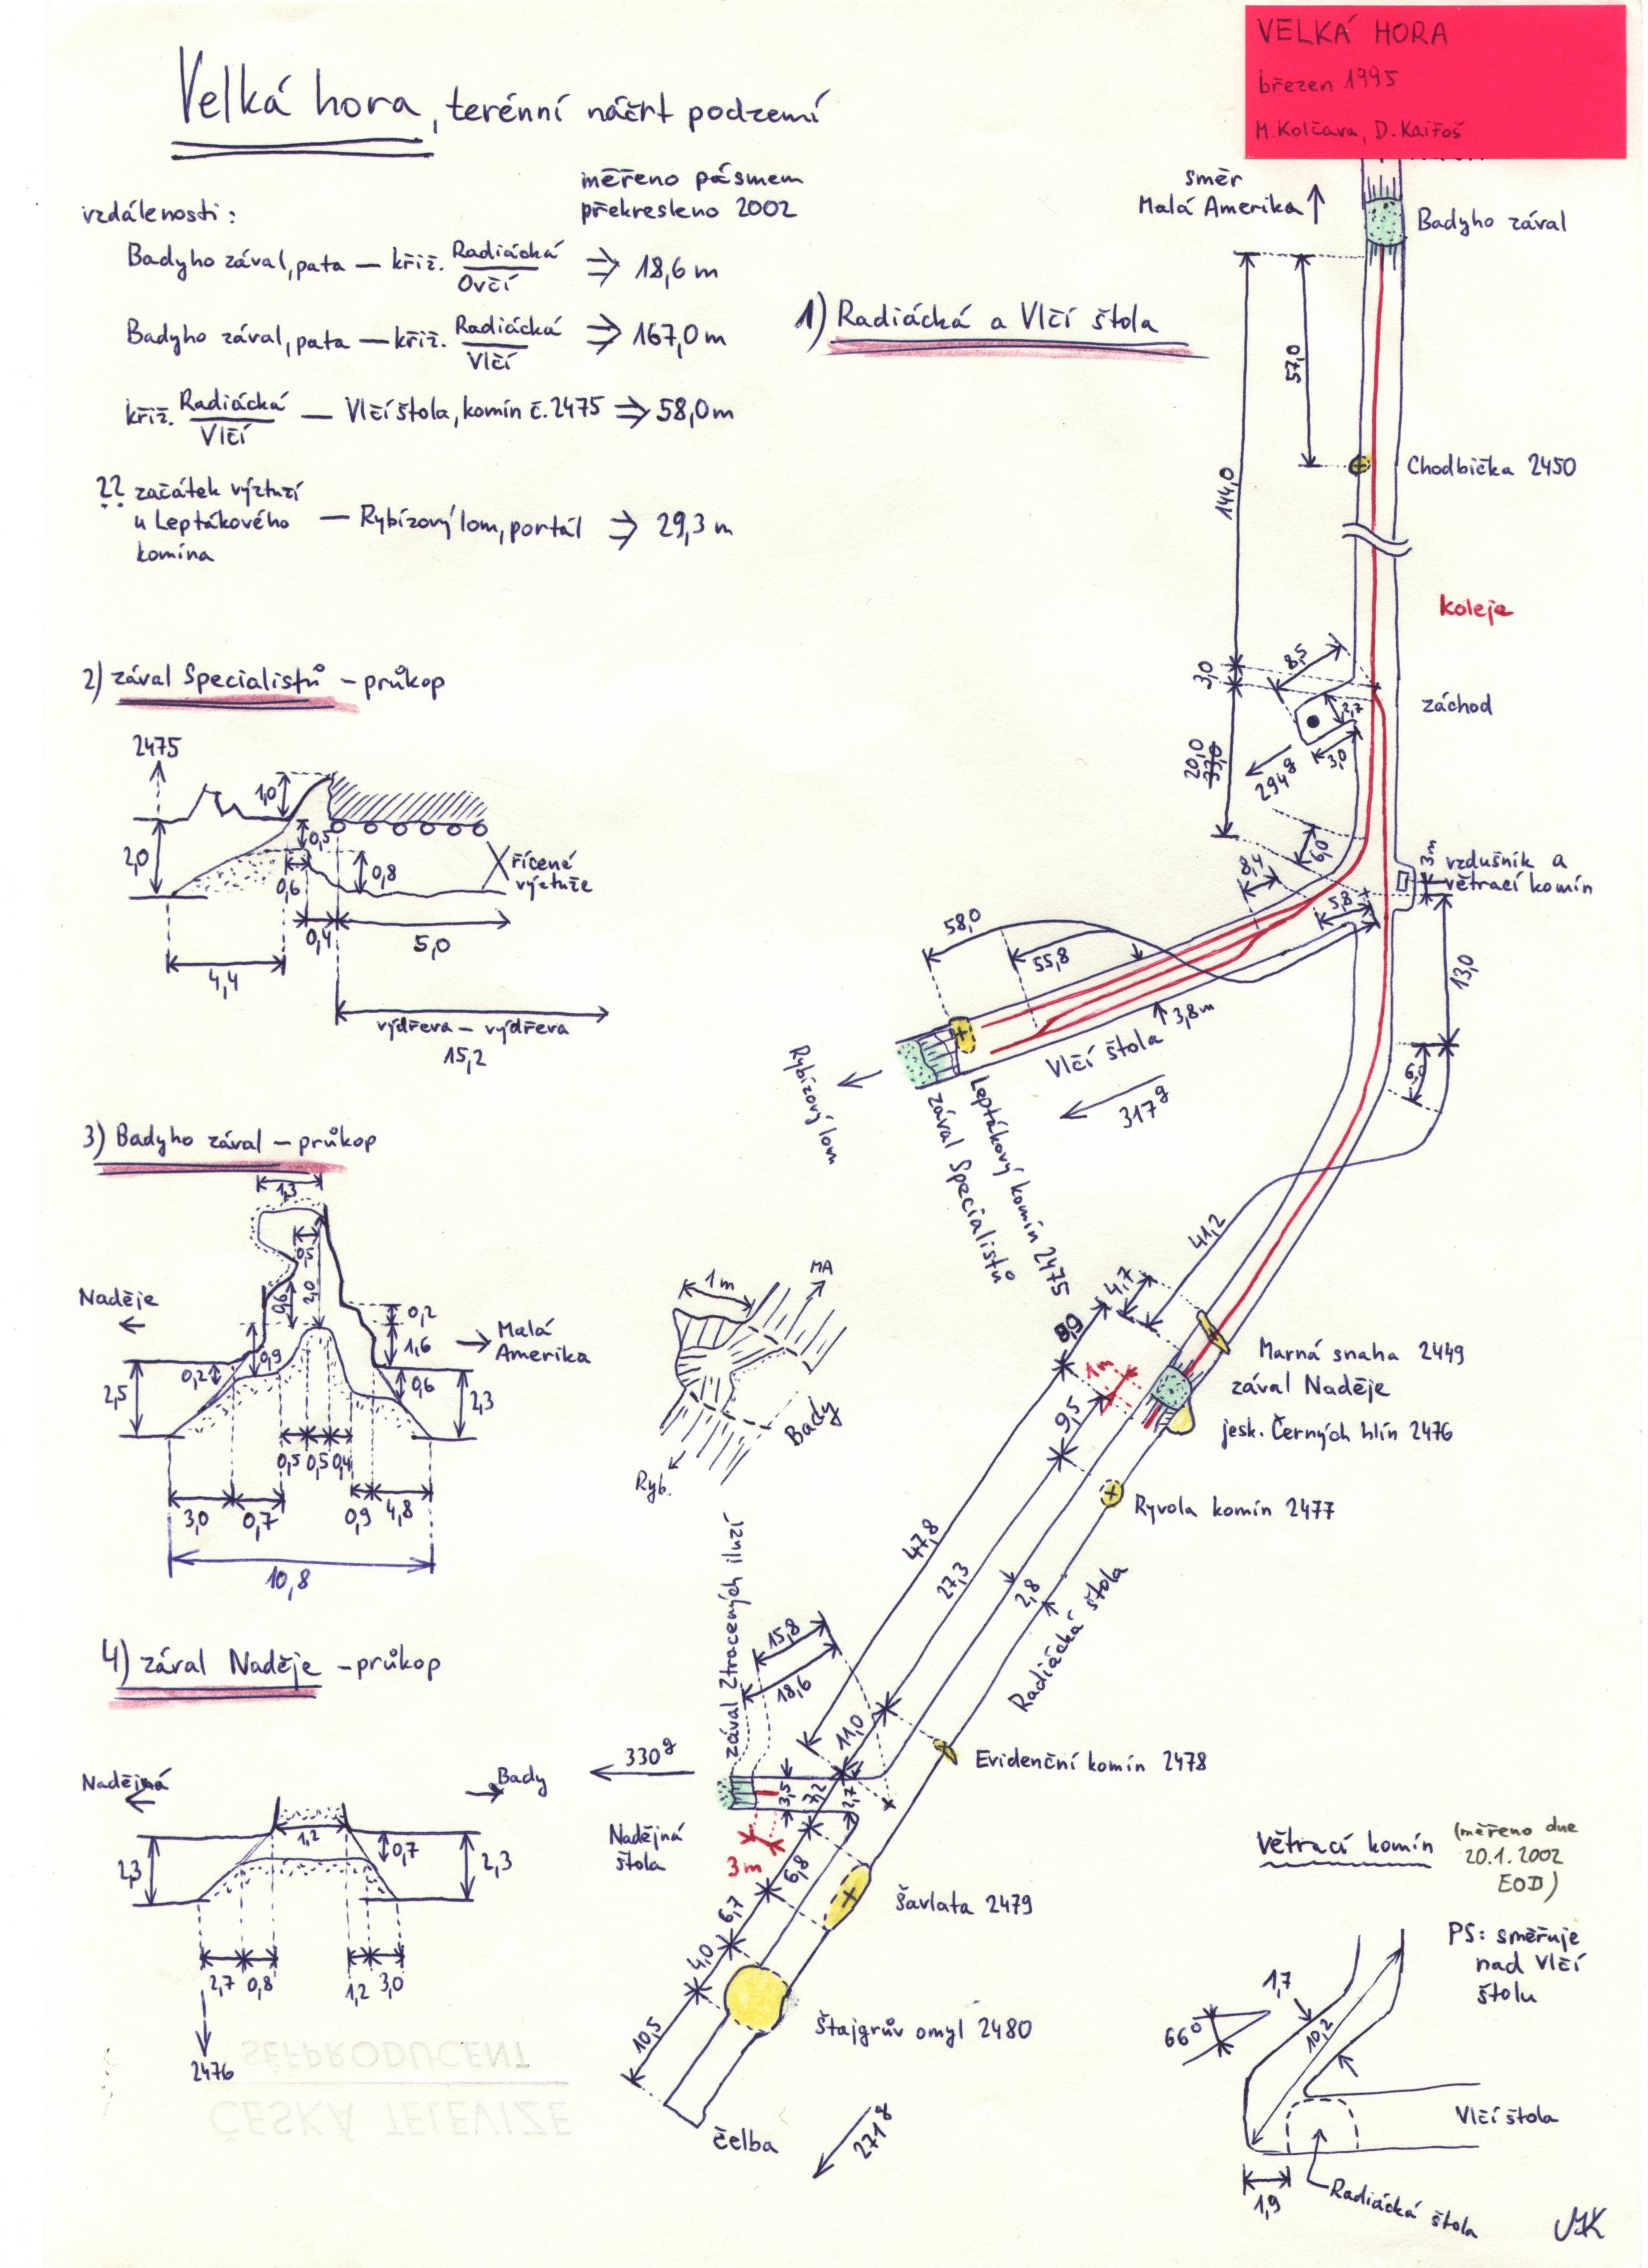 VELKÁ HORA
březen 1995
M.Kolčava, D.Kaifoš
Velká hora, terénní náčrt podzemí
měřeno pásmem
překresleno 2002
vzdálenosti:
Badyho zával, pata — křiž. Radiácká / Ovčí ⇒ 18,6 m
Badyho zával, pata — křiž. Radiácká / Vlčí ⇒ 167,0 m
křiž. Radiácká / Vlčí — Vlčí štola, komín č. 2475 ⇒ 58,0 m
?? začátek výztuží
u Leptákového — Rybízový lom, portál ⇒ 29,3 m
komína
1) Radiácká a Vlčí štola
směr
Malá Amerika ↑
Badyho zával
57,0
144,0
Chodbička 2450
koleje
8,5
3,0
záchod
2,7
3,0
20,0
33,0
294g
6,0
8,4
3m
vzdušník a
větrací komín
5,8
58,0
55,8
13,0
3,8m
Vlčí štola
317g
Rybízový lom
zával Specialistů
Leptákový komín 2475
6,0
41,2
4,7
8,9
1m
9,5
Marná snaha 2449
zával Naděje
jesk. Černých hlín 2476
Ryvola komín 2477
47,8
27,3
2,8
Radiácká štola
zával Ztracených iluzí
15,8
18,6
11,0
330g
3,5
7,2
2,7
Evidenční komín 2478
Nadějná
štola
3m
6,8
6,7
Šavlata 2479
4,0
10,5
Štajgrův omyl 2480
čelba
271g
2) zával Specialistů – průkop
2475
1,0
2,0
0,5
0,6
0,8
řícené
výztuže
0,4
5,0
4,4
výdřeva – výdřeva
15,2
3) Badyho zával – průkop
1,3
0,5
2,0
0,6
Naděje
0,2
1,6
Malá
Amerika
0,9
0,2
2,5
0,6
2,3
0,5 0,5 0,4
3,0 0,7 0,9 4,8
10,8
1m
MA
Bady
Ryb.
4) zával Naděje – průkop
Nadějná
Bady
1,2
2,3
0,7
2,3
2,7 0,8 1,2 3,0
2476
ŠÉFPRODUCENT
ČESKÁ TELEVIZE
větrací komín (měřeno dne
20.1.2002
EOD)
PS: směřuje
nad Vlčí
štolu
1,7
66°
10,2
Vlčí štola
1,9
Radiácká štola
MK